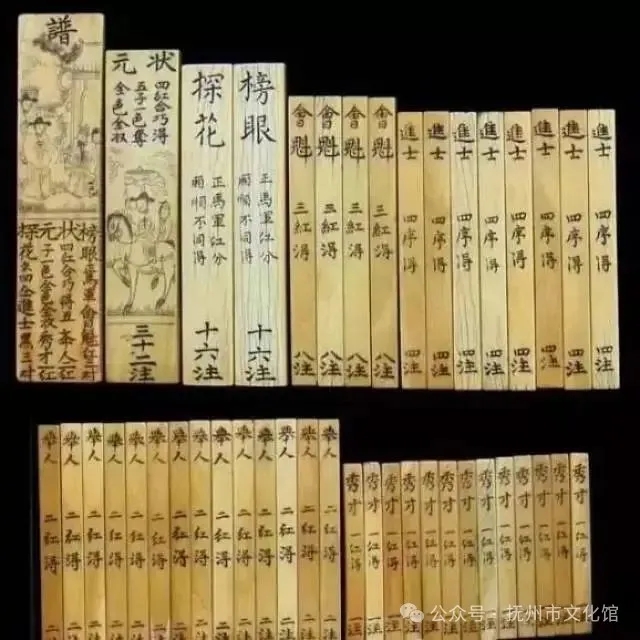 譜
状元
四紅合巧得
五子一色奪
全色全收
三十二注
探花
正馬軍紅分
兩順不同得
十六注
榜眼
正馬軍紅分
兩順不同得
十六注
會魁 三紅得 八注
會魁 三紅得 八注
會魁 三紅得 八注
會魁 三紅得 八注
進士 四序得 四注
進士 四序得 四注
進士 四序得 四注
進士 四序得 四注
進士 四序得 四注
進士 四序得 四注
進士 四序得 四注
進士 四序得 四注
举人 二紅得 二注
举人 二紅得 二注
举人 二紅得 二注
举人 二紅得 二注
举人 二紅得 二注
举人 二紅得 二注
举人 二紅得 二注
举人 二紅得 二注
举人 二紅得 二注
举人 二紅得 二注
举人 二紅得 二注
举人 二紅得 二注
举人 二紅得 二注
秀才 一紅得 一注
秀才 一紅得 一注
秀才 一紅得
秀才 一紅得
秀才 一紅得
秀才 一紅得
秀才 一紅得
秀才 一紅得
秀才 一紅得
秀才 一紅得
秀才 一紅得
秀才 一紅得
秀才 一紅得
公众号·抚州市文化馆